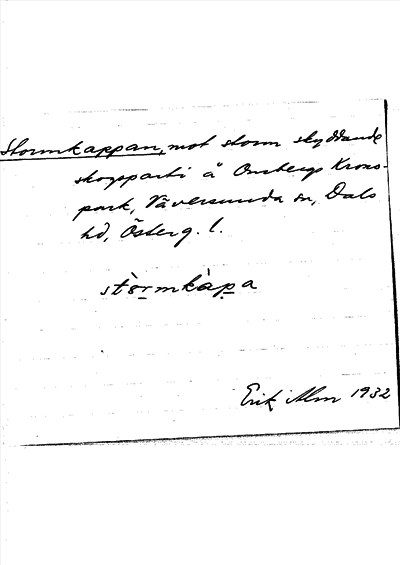 Stormkappan, mot storm skyddande
skogsparti å Ombergs Krono-
park, Väversunda sn, Dals
hd, Österg. l.
stòrmkàpa
Erik Alm 1932